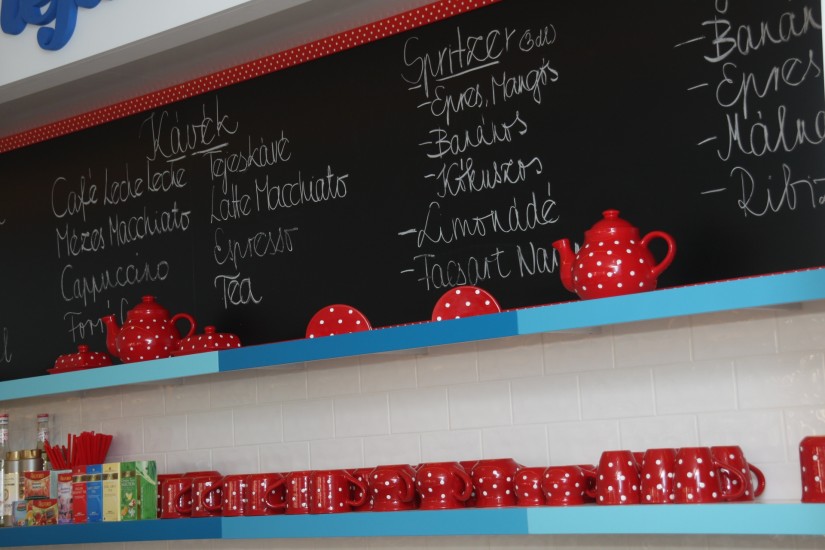 Kávék
Café Leche leche
Mézes Macchiato
Cappuccino
Forró
Tejeskávé
Latte Macchiato
Espresso
Tea
Spritzer (3dl)
-Epres, Mangós
-Banános
-Kókuszos
-Limonádé
-Facsart Nar
-Banán
-Epres
-Málna
-Ribiz